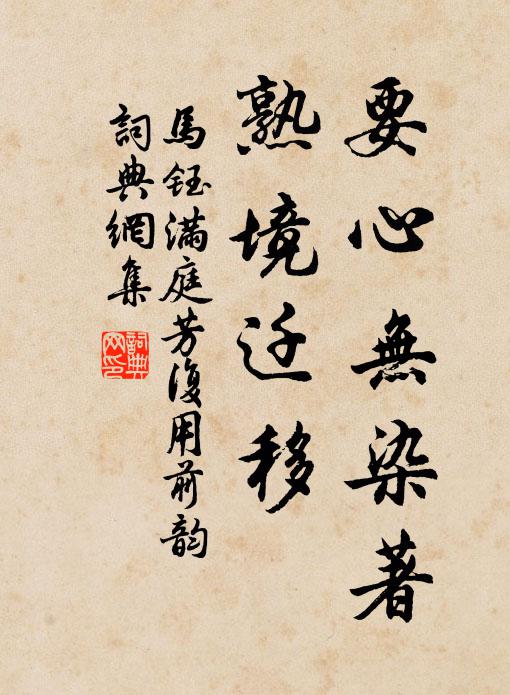 要心無染著
熟境迁移
馬鈺滿庭芳復用前韵
詞典網集
詞典网印